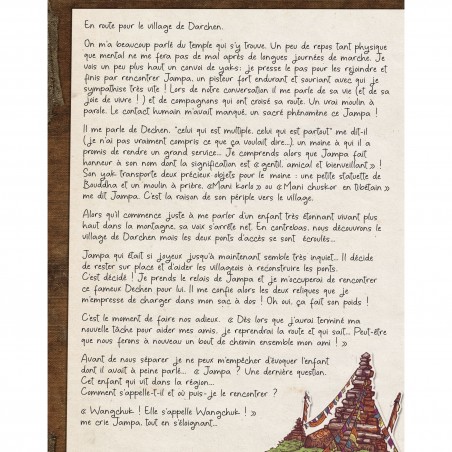 En route pour le village de Darchen.
On m'a beaucoup parlé du temple qui s'y trouve. Un peu de repos tant physique
que mental ne me fera pas de mal après de longues journées de marche. Je
vois un peu plus haut un convoi de yaks : je presse le pas pour les rejoindre et
finis par rencontrer Jampa, un pisteur fort endurant et souriant avec qui je
sympathise très vite ! Lors de notre conversation il me parle de sa vie (et de sa
joie de vivre ! ) et de compagnons qui ont croisé sa route. Un vrai moulin à
parole. Le contact humain m'avait manqué, un sacré phénomène ce Jampa !
Il me parle de Dechen, "celui qui est multiple, celui qui est partout" me dit-il
(je n'ai pas vraiment compris ce que ça voulait dire...), un moine à qui il a
promis de rendre un grand service... Je comprends alors que Jampa fait
honneur à son nom dont la signification est « gentil, amical et bienveillant » !
Son yak transporte deux précieux objets pour le moine : une petite statuette de
Bouddha et un moulin à prière, « Mani korlo » ou « Mani chuskor en tibétain »
me dit Jampa. C'est la raison de son périple vers le village.
Alors qu'il commence juste à me parler d'un enfant très étonnant vivant plus
haut dans la montagne, sa voix s'arrête net. En contrebas, nous découvrons le
village de Darchen mais les deux ponts d'accès se sont écroulés...
Jampa qui était si joyeux jusqu'à maintenant semble très inquiet... Il décide
de rester sur place et d'aider les villageois à reconstruire les ponts.
C'est décidé ! Je prends le relais de Jampa et je m'occuperai de rencontrer
ce fameux Dechen pour lui. Il me confie alors les deux reliques que je
m'empresse de charger dans mon sac à dos ! Oh oui, ça fait son poids !
C'est le moment de faire nos adieux. « Dès lors que j'aurai terminé ma
nouvelle tâche pour aider mes amis, je reprendrai la route et qui sait... Peut-être
que nous ferons à nouveau un bout de chemin ensemble mon ami ! »
Avant de nous séparer je ne peux m'empêcher d'évoquer l'enfant
dont il avait à peine parlé... « Jampa ? Une dernière question.
Cet enfant qui vit dans la région...
Comment s'appelle-t-il et où puis-je le rencontrer ?
« Wangchuk ! Elle s'appelle Wangchuk ! »
me crie Jampa, tout en s'éloignant...